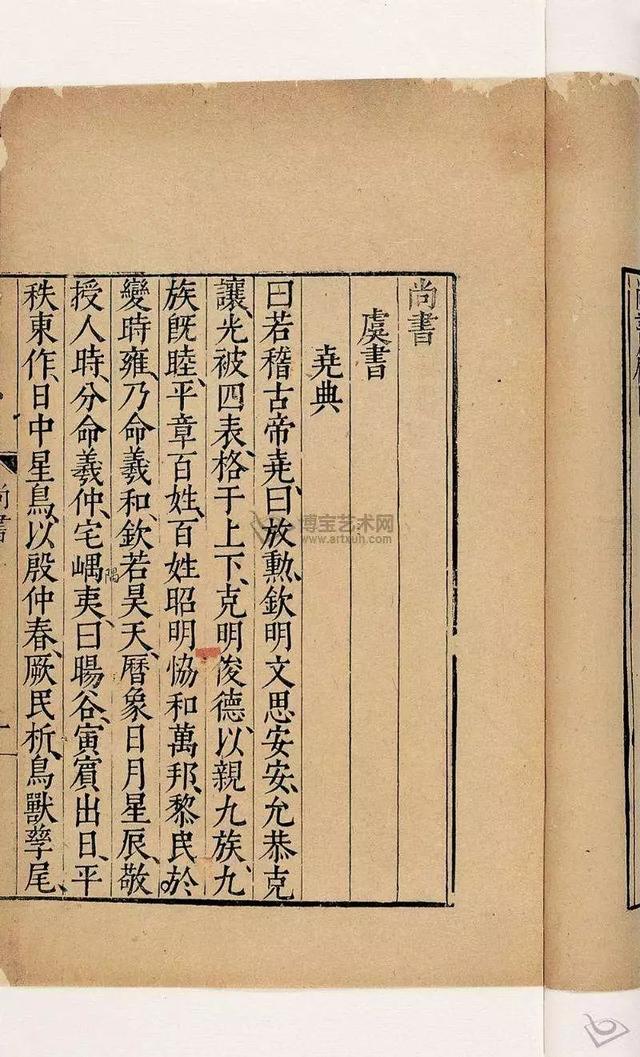 尚書
虞書
堯典
曰若稽古帝堯、曰放勲、欽明文思安安、允恭克
讓、光被四表、格于上下、克明俊德、以親九族、九
族既睦、平章百姓、百姓昭明、協和萬邦、黎民於
變時雍、乃命羲和、欽若昊天、曆象日月星辰、敬
授人時、分命羲仲、宅嵎夷、曰暘谷、寅賓出日、平
隅
秩東作、日中星鳥、以殷仲春、厥民析、鳥獸孳尾、
尚書
博宝艺术网
www.artxun.com